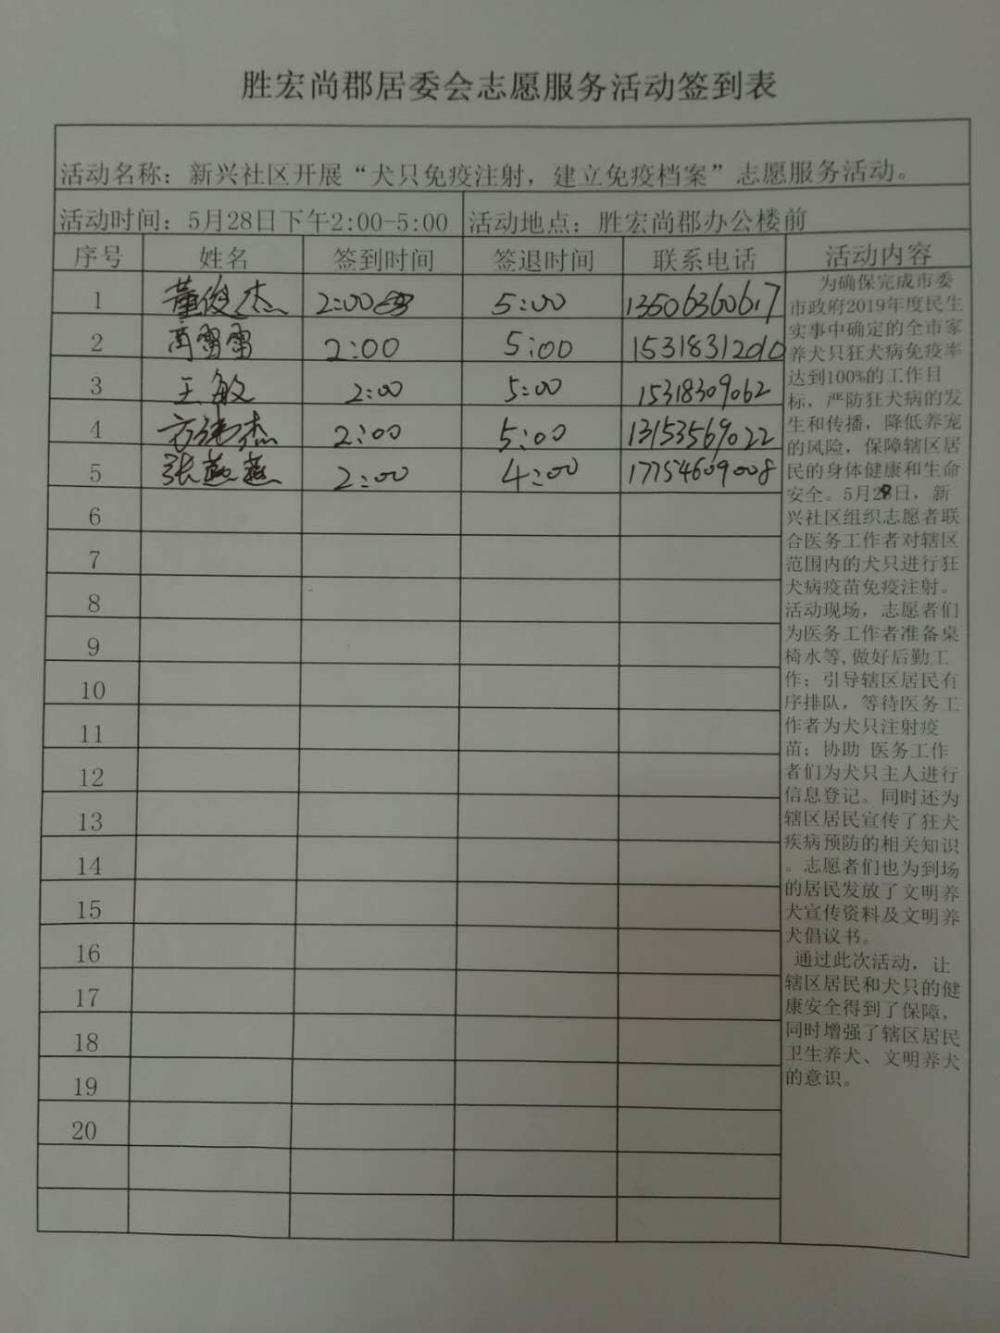 胜宏尚郡居委会志愿服务活动签到表
活动名称：新兴社区开展“犬只免疫注射，建立免疫档案”志愿服务活动。
活动时间：5月28日下午2:00-5:00 活动地点：胜宏尚郡办公楼前
序号 姓名 签到时间 签退时间 联系电话 活动内容
1 董俊杰 2:00 5:00 13506360617
2 高雷雷 2:00 5:00
3 王敏 2:00 5:00 15318309062
4 方 杰 2:00 5:00 13153569022
5 张燕燕 2:00 4:00 17754609008
6
7
8
9
10
11
12
13
14
15
16
17
18
19
20
为确保完成市委
市政府2019年度民生
实事中确定的全市家
养犬只狂犬病免疫率
达到100%的工作目
标，严防狂犬病的发
生和传播，降低养宠
的风险，保障辖区居
民的身体健康和生命
安全。5月28日，新
兴社区组织志愿者联
合医务工作者对辖区
范围内的犬只进行狂
犬病疫苗免疫注射。
活动现场，志愿者们
为医务工作者准备桌
椅水等,做好后勤工
作；引导辖区居民有
序排队，等待医务工
作者为犬只注射疫
苗；协助 医务工作
者们为犬只主人进行
信息登记。同时还为
辖区居民宣传了狂犬
疾病预防的相关知识
。志愿者们也为到场
的居民发放了文明养
犬宣传资料及文明养
犬倡议书。
通过此次活动，让
辖区居民和犬只的健
康安全得到了保障，
同时增强了辖区居民
卫生养犬、文明养犬
的意识。